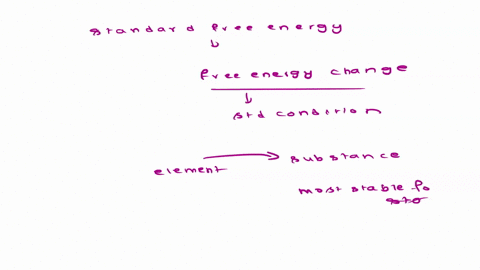 standard free energy
free energy change
std condition
element substance
most stable fo